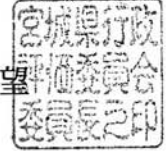 望
宮城県行政
評価委員会
委員長之印